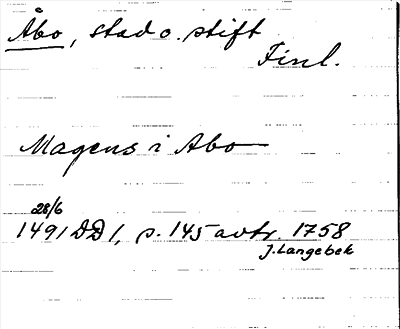 Åbo, stad o. stift
Finl.
Magens i Abo
28/6
1491 DD 1, p. 145 avtr. 1758
J. Langebek